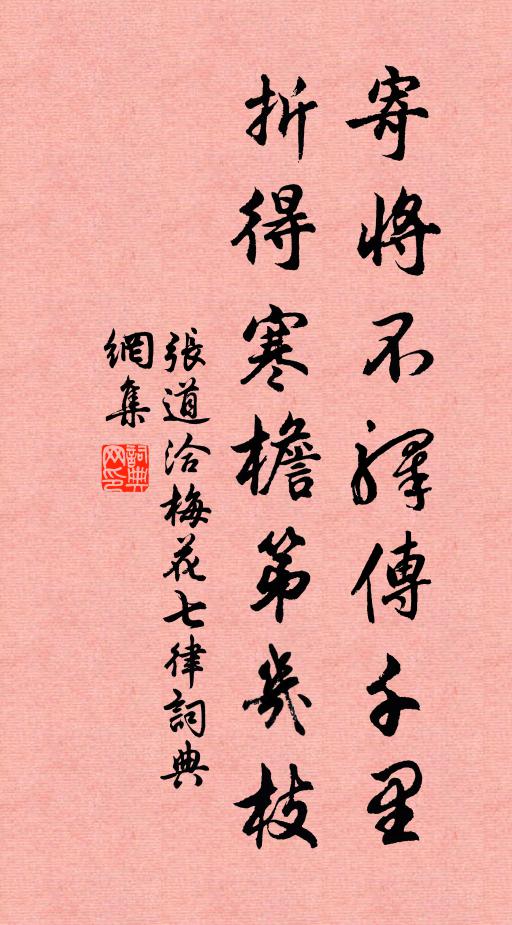 寄將不驛傳千里
折得寒檐第幾枝
張道洽梅花七律詞典
網集
詞典
网印